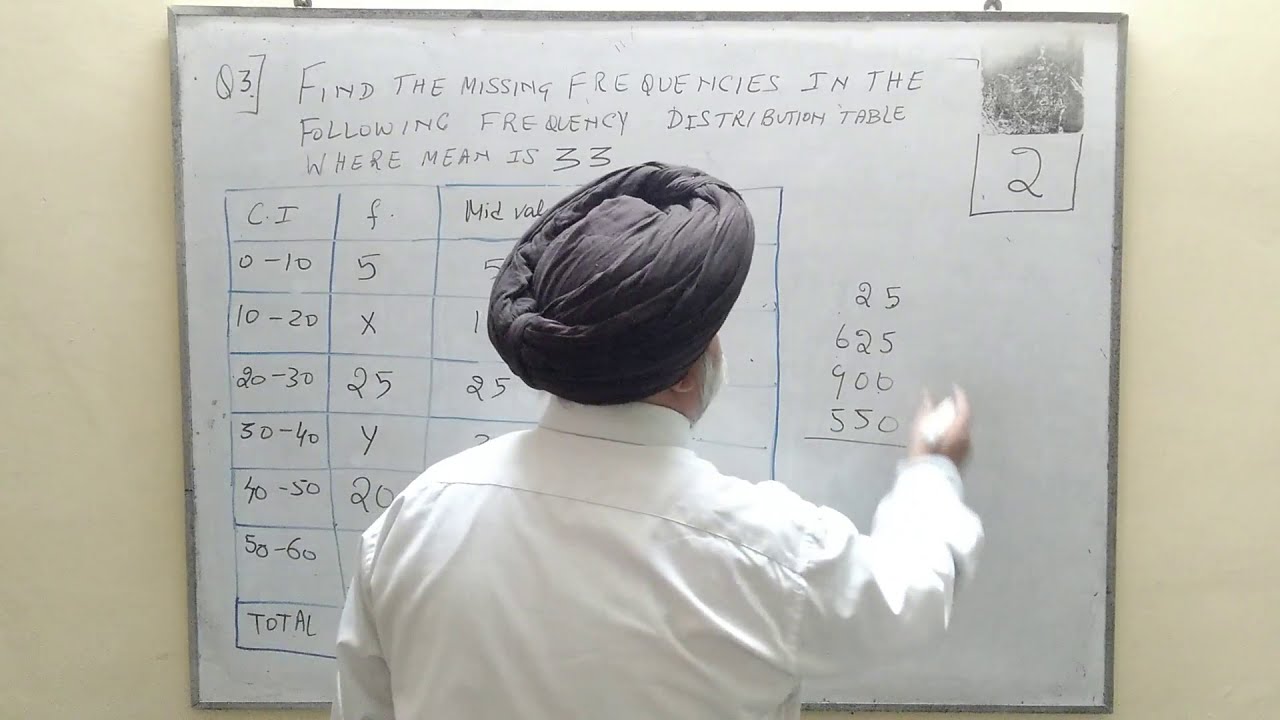 Q3.] FIND THE MISSING FREQUENCIES IN THE
FOLLOWING FREQUENCY DISTRIBUTION TABLE
WHERE MEAN IS 33
2
C.I f. Mid
0-10 5 5
10-20 X
20-30 25 25
30-40 Y
40-50 20
50-60
TOTAL
25
625
900
550